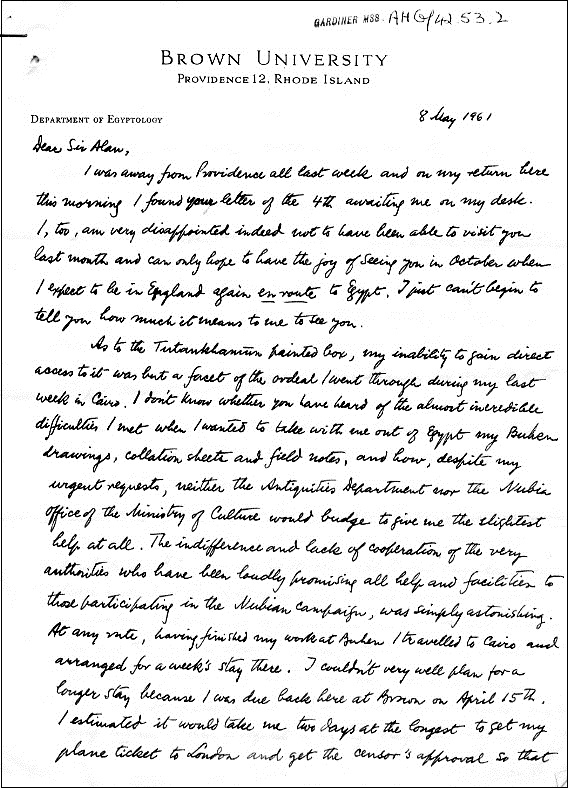 GARDINER MSS. AHG/42.53.2
BROWN UNIVERSITY
PROVIDENCE 12, RHODE ISLAND
DEPARTMENT OF EGYPTOLOGY
8 May 1961
Dear Sir Alan,
I was away from Providence all last week and on my return here
this morning I found your letter of the 4th awaiting me on my desk.
I, too, am very disappointed indeed not to have been able to visit you
last month and can only hope to have the joy of seeing you in October when
I expect to be in England again en route to Egypt. I just can't begin to
tell you how much it means to me to see you.
As to the Tutankhamūn painted box, my inability to gain direct
access to it was but a facet of the ordeal I went through during my last
week in Cairo. I don't know whether you have heard of the almost incredible
difficulties I met when I wanted to take with me out of Egypt my Buhen
drawings, collation sheets and field notes, and how, despite my
urgent requests, neither the Antiquities Department nor the Nubia
office of the Ministry of Culture would budge to give me the slightest
help at all. The indifference and lack of cooperation of the very
authorities who have been loudly promising all help and facilities to
those participating in the Nubian campaign, was simply astonishing.
At any rate, having finished my work at Buhen I travelled to Cairo and
arranged for a week's stay there. I couldn't very well plan for a
longer stay because I was due back here at Brown on April 15th.
I estimated it would take me two days at the longest to get my
plane ticket to London and get the censor's approval so that